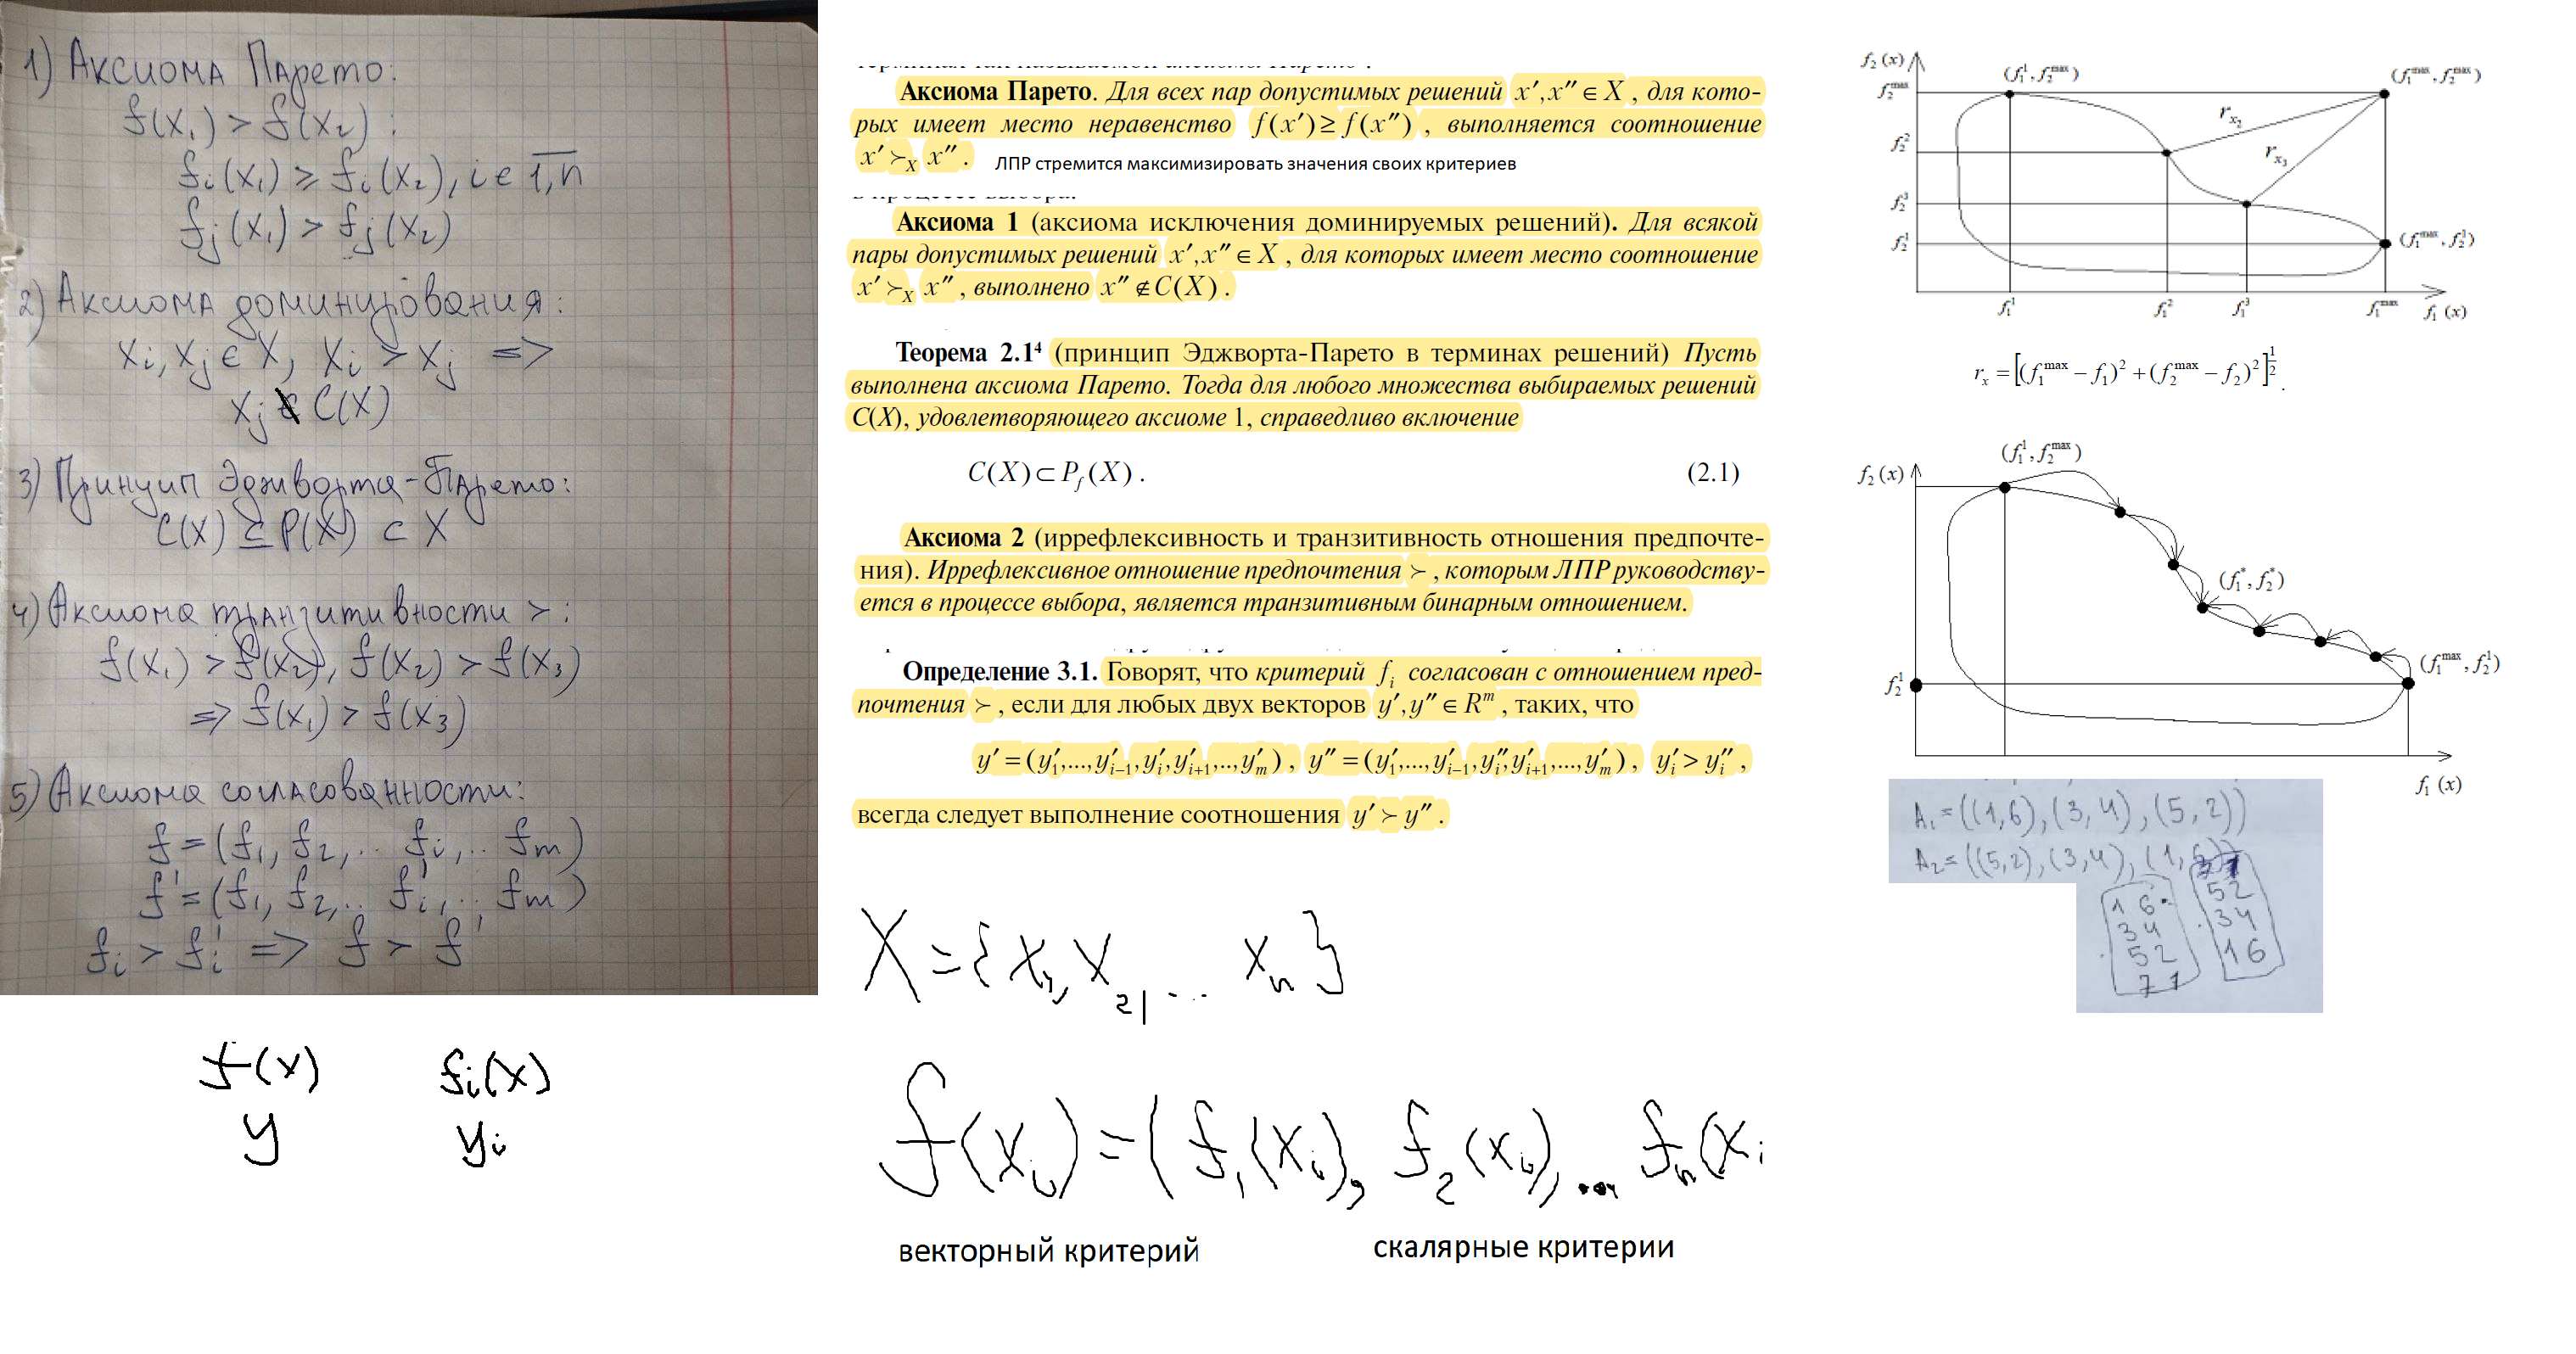 1) Аксиома Парето:
f(x₁) > f(x₂):
fᵢ(x₁) ⩾ fᵢ(x₂), i ∈ 1,n
fⱼ(x₁) > fⱼ(x₂)
2) Аксиома доминирования:
xᵢ, xⱼ ∈ X, xᵢ > xⱼ =>
xⱼ ∉ C(X)
3) Принцип Эджворта-Парето:
C(X) ⊆ P(X) ⊂ X
4) Аксиома транзитивности >:
f(x₁) > f(x₂), f(x₂) > f(x₃)
=> f(x₁) > f(x₃)
5) Аксиома согласованности:
f = (f₁, f₂, .. fᵢ, .. fₘ)
f' = (f₁, f₂, .. fᵢ', .. fₘ)
fᵢ > fᵢ' => f > f'
f(x) fᵢ(x)
y yᵢ
Аксиома Парето. Для всех пар допустимых решений x′, x″ ∈ X , для кото-
рых имеет место неравенство f(x′) ≥ f(x″) , выполняется соотношение
x′ ≻X x″ . ЛПР стремится максимизировать значения своих критериев
Аксиома 1 (аксиома исключения доминируемых решений). Для всякой
пары допустимых решений x′, x″ ∈ X , для которых имеет место соотношение
x′ ≻X x″ , выполнено x″ ∉ C(X) .
Теорема 2.1⁴ (принцип Эджворта-Парето в терминах решений) Пусть
выполнена аксиома Парето. Тогда для любого множества выбираемых решений
C(X), удовлетворяющего аксиоме 1, справедливо включение
C(X) ⊂ Pf(X) . (2.1)
Аксиома 2 (иррефлексивность и транзитивность отношения предпочте-
ния). Иррефлексивное отношение предпочтения ≻ , которым ЛПР руководству-
ется в процессе выбора, является транзитивным бинарным отношением.
Определение 3.1. Говорят, что критерий fᵢ согласован с отношением пред-
почтения ≻ , если для любых двух векторов y′, y″ ∈ Rᵐ , таких, что
y′ = (y′₁,..., y′ᵢ₋₁, y′ᵢ, y′ᵢ₊₁,..., y′ₘ) , y″ = (y′₁,..., y′ᵢ₋₁, y″ᵢ, y′ᵢ₊₁,..., y′ₘ) , y′ᵢ > y″ᵢ ,
всегда следует выполнение соотношения y′ ≻ y″ .
X = {x₁, x₂, ... xₙ}
f(xᵢ) = (f₁(xᵢ), f₂(xᵢ), ... fₙ(xᵢ
векторный критерий скалярные критерии
f₂ (x)
(f₁¹, f₂ᵐᵃˣ) (f₁ᵐᵃˣ, f₂ᵐᵃˣ)
f₂ᵐᵃˣ
rx₂
f₂²
rx₃
f₂³
f₂¹ (f₁ᵐᵃˣ, f₂¹)
f₁¹ f₁² f₁³ f₁ᵐᵃˣ f₁ (x)
rₓ = [(f₁ᵐᵃˣ − f₁)² + (f₂ᵐᵃˣ − f₂)²]^½ .
(f₁¹, f₂ᵐᵃˣ)
f₂ (x)
(f₁*, f₂*)
(f₁ᵐᵃˣ, f₂¹)
f₂¹
f₁ (x)
A₁ = ((1,6), (3,4), (5,2))
A₂ = ((5,2), (3,4), (1,6))
1 6
3 4
5 2
7 1
5 2
3 4
1 6